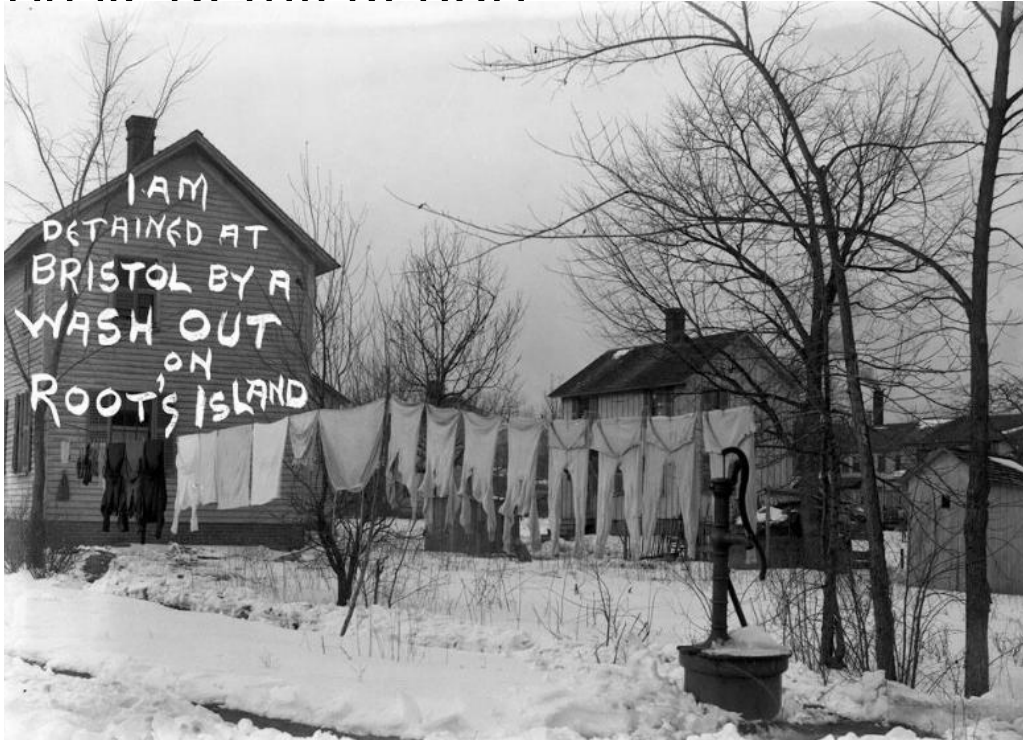 I AM
DETAINED AT
BRISTOL BY A
WASH OUT
ON
ROOT'S ISLAND